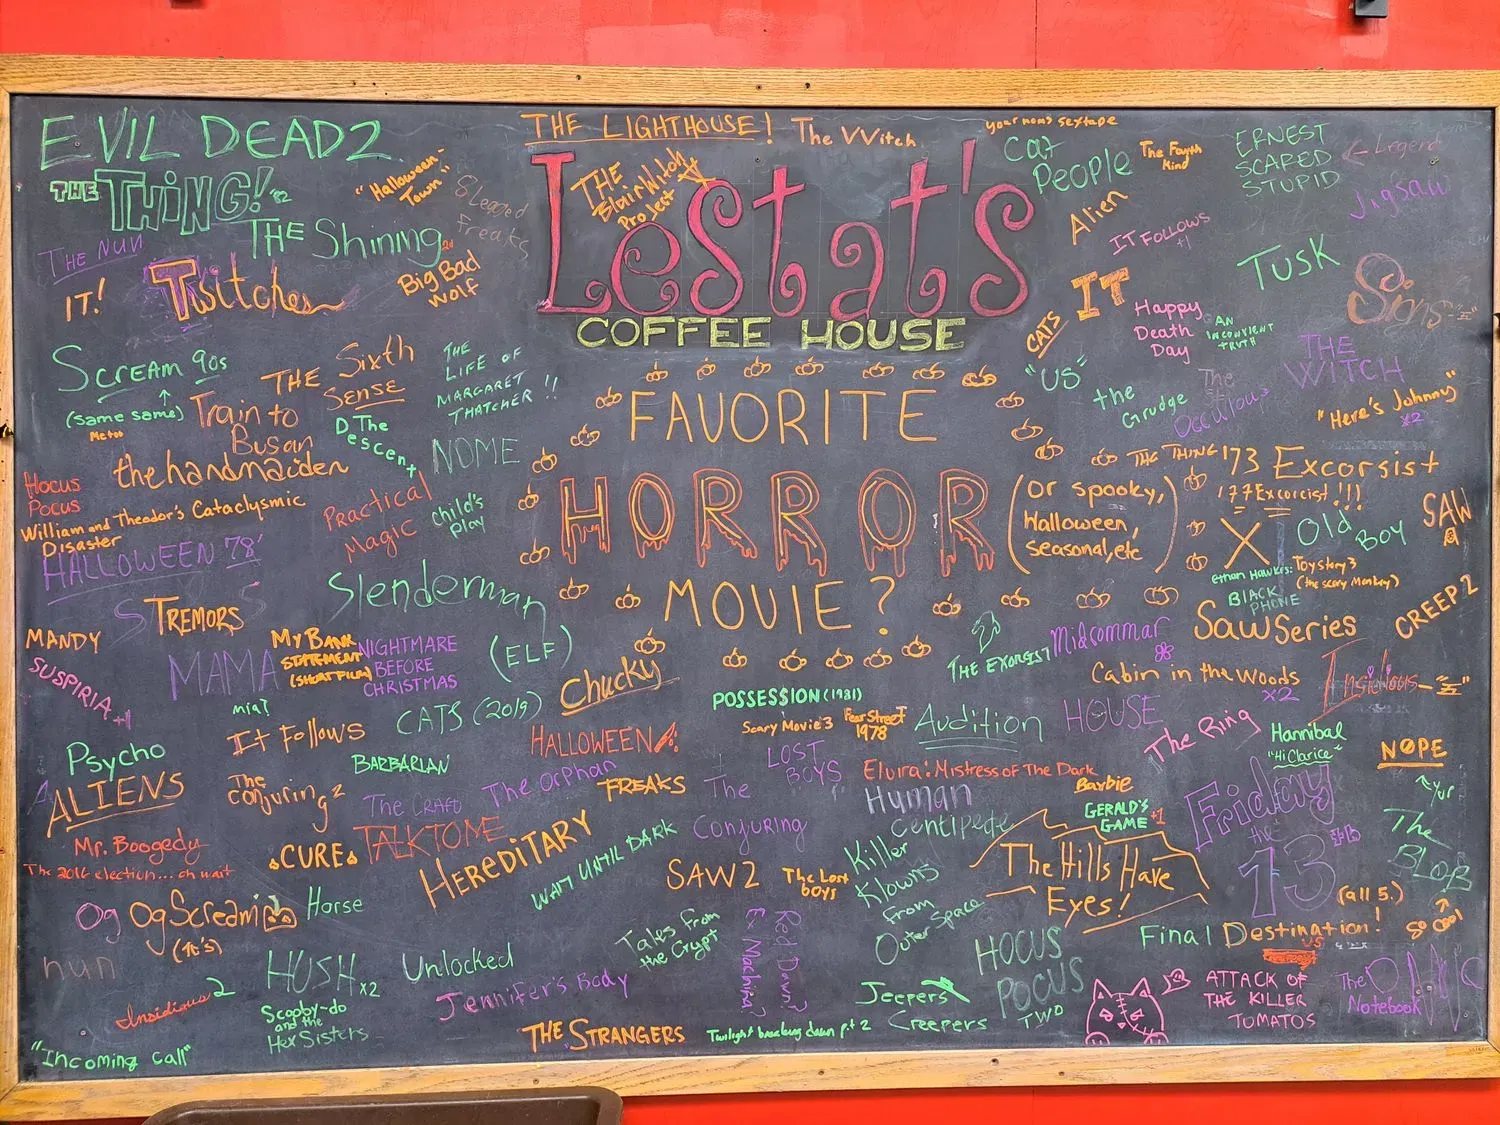 EVIL DEAD 2
THE THING! '82
THE LIGHTHOUSE!
The VVitch
your moms sextape
Cat
People
The Fourth
Kind
ERNEST
SCARED
STUPID
← Legend
Jigsaw
"Halloween-
Town"
8 Legged
Freaks
THE
Blair Witch
Project
Lestat's
COFFEE HOUSE
Alien
IT FOLLOWS
+1
TUSK
THE Shining
THE NUN
IT!
Twitches
Big Bad
Wolf
IT
CATS
Happy
Death
Day
AN
INCONVIENT
TRUTH
Signs
Scream 90s
(same same)
Me too
THE Sixth
Sense
THE
LIFE OF
MARGARET
THATCHER!!
"US"
the
Grudge
The
Occulous
THE
WITCH
"Here's Johnny"
x2
FAVORITE
HORROR
MOVIE?
(or spooky,
Halloween,
seasonal, etc)
Train to
Busan
The
Descent
NOME
the handmaiden
Hocus
Pocus
William and Theodor's Cataclysmic
Disaster
Practical
Magic
Child's
Play
THE THING
'73 Excorsist
'77 Excorcist!!!
X
Old Boy
SAW
HALLOWEEN 78'
Slenderman
Ethan Hawkes:
BLACK
PHONE
Toystory 3
(the scary monkey)
CREEP 2
TREMORS
MANDY
SUSPIRIA +1
MAMA
mia?
My BANK
STATEMENT
(SHORT FILM)
NIGHTMARE
BEFORE
CHRISTMAS
(ELF)
Chucky
THE EXORSIST
Midsommar
Saw Series
Cabin in the Woods
x2
Insidious
POSSESSION (1981)
CATS (2019)
It Follows
Scary Movie 3
Fear Street
1978
Audition
HOUSE
The Ring
Hannibal
"Hi Clarice"
NOPE
Psycho
ALIENS
The
Conjuring 2
BARBARIAN
HALLOWEEN
LOST
BOYS
Elvira: Mistress of The Dark
Barbie
The CRAFT
The Orphan
FREAKS
The
Conjuring
Human
Centipede
GERALD'S
GAME +1
Friday
the
13
(all 5.)
The
BLOB
so cool
Mr. Boogedy
The 2016 election... oh wait
CURE
TALK TO ME
HEREDITARY
WAIT UNTIL DARK
SAW 2
The Lost
boys
Killer
Klowns
From
Outer Space
The Hills Have
Eyes!
Og
Og Scream
(It's)
Horse
nun
HUSH x2
Unlocked
Tales from
the Crypt
Red Dawn?
E Machina?
HOCUS
POCUS
TWO
Final Destination!
Insidious 2
Scooby-do
and the
Hex Sisters
Jennifer's Body
Jeepers
Creepers
ATTACK OF
THE KILLER
TOMATOS
The
Notebook
"Incoming call"
THE STRANGERS
Twilight breaking dawn pt 2